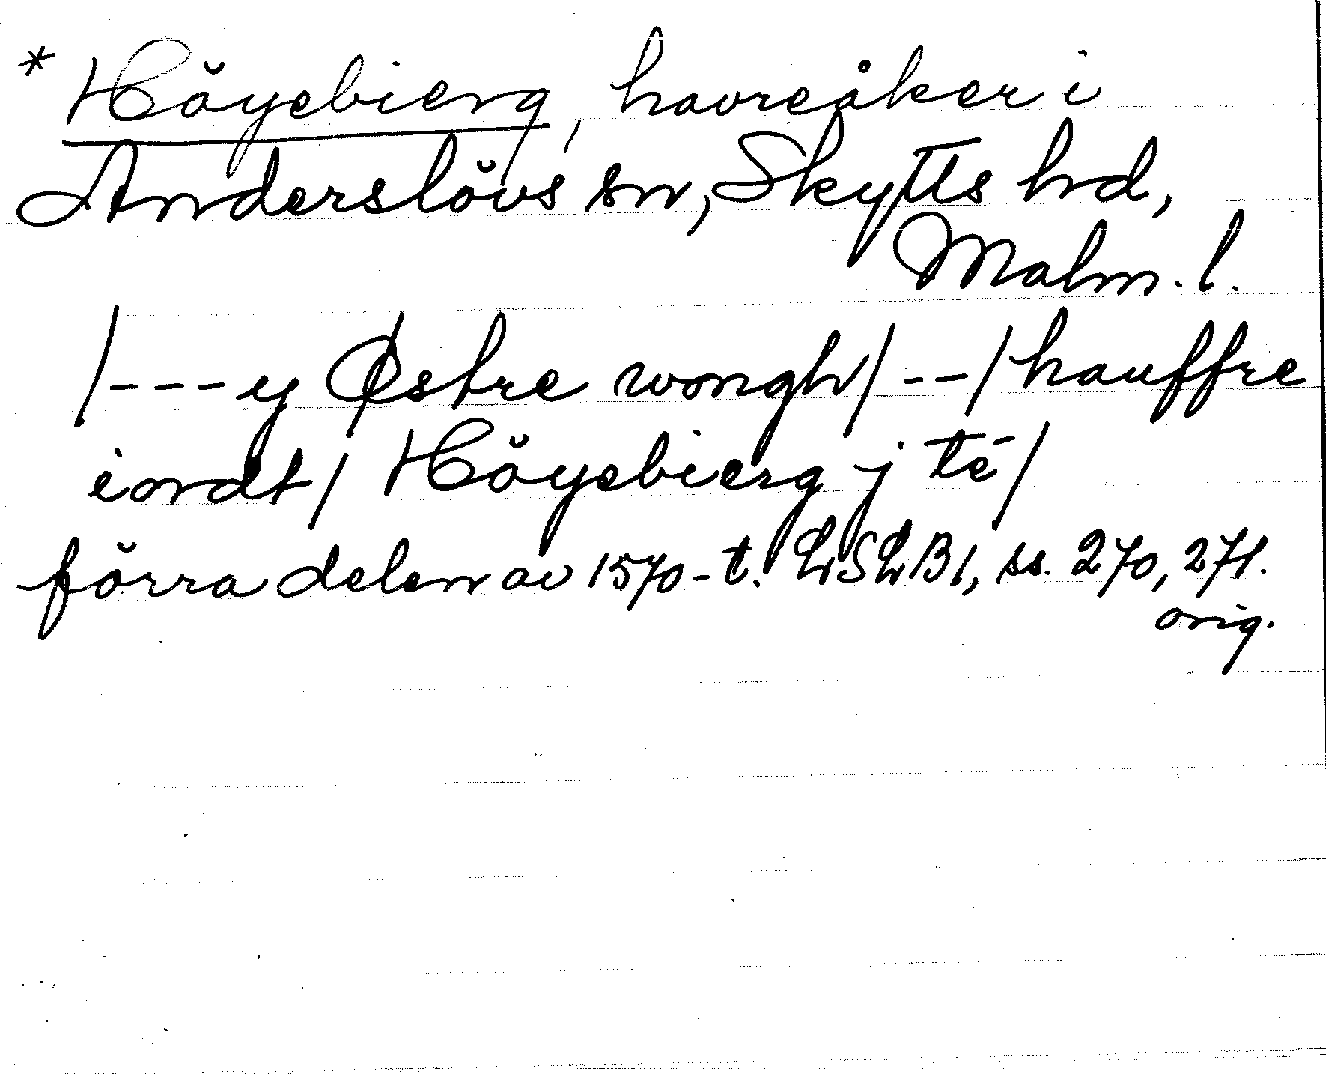 * Höyebierg, havreåker i
Anderslövs sn, Skytts hd,
Malm. l.
/---y Østre wongh/--/hauffre
iordt/ Höyebierg j te/
förra delen av 1570-t. LSLB1, ss. 270, 271.
orig.